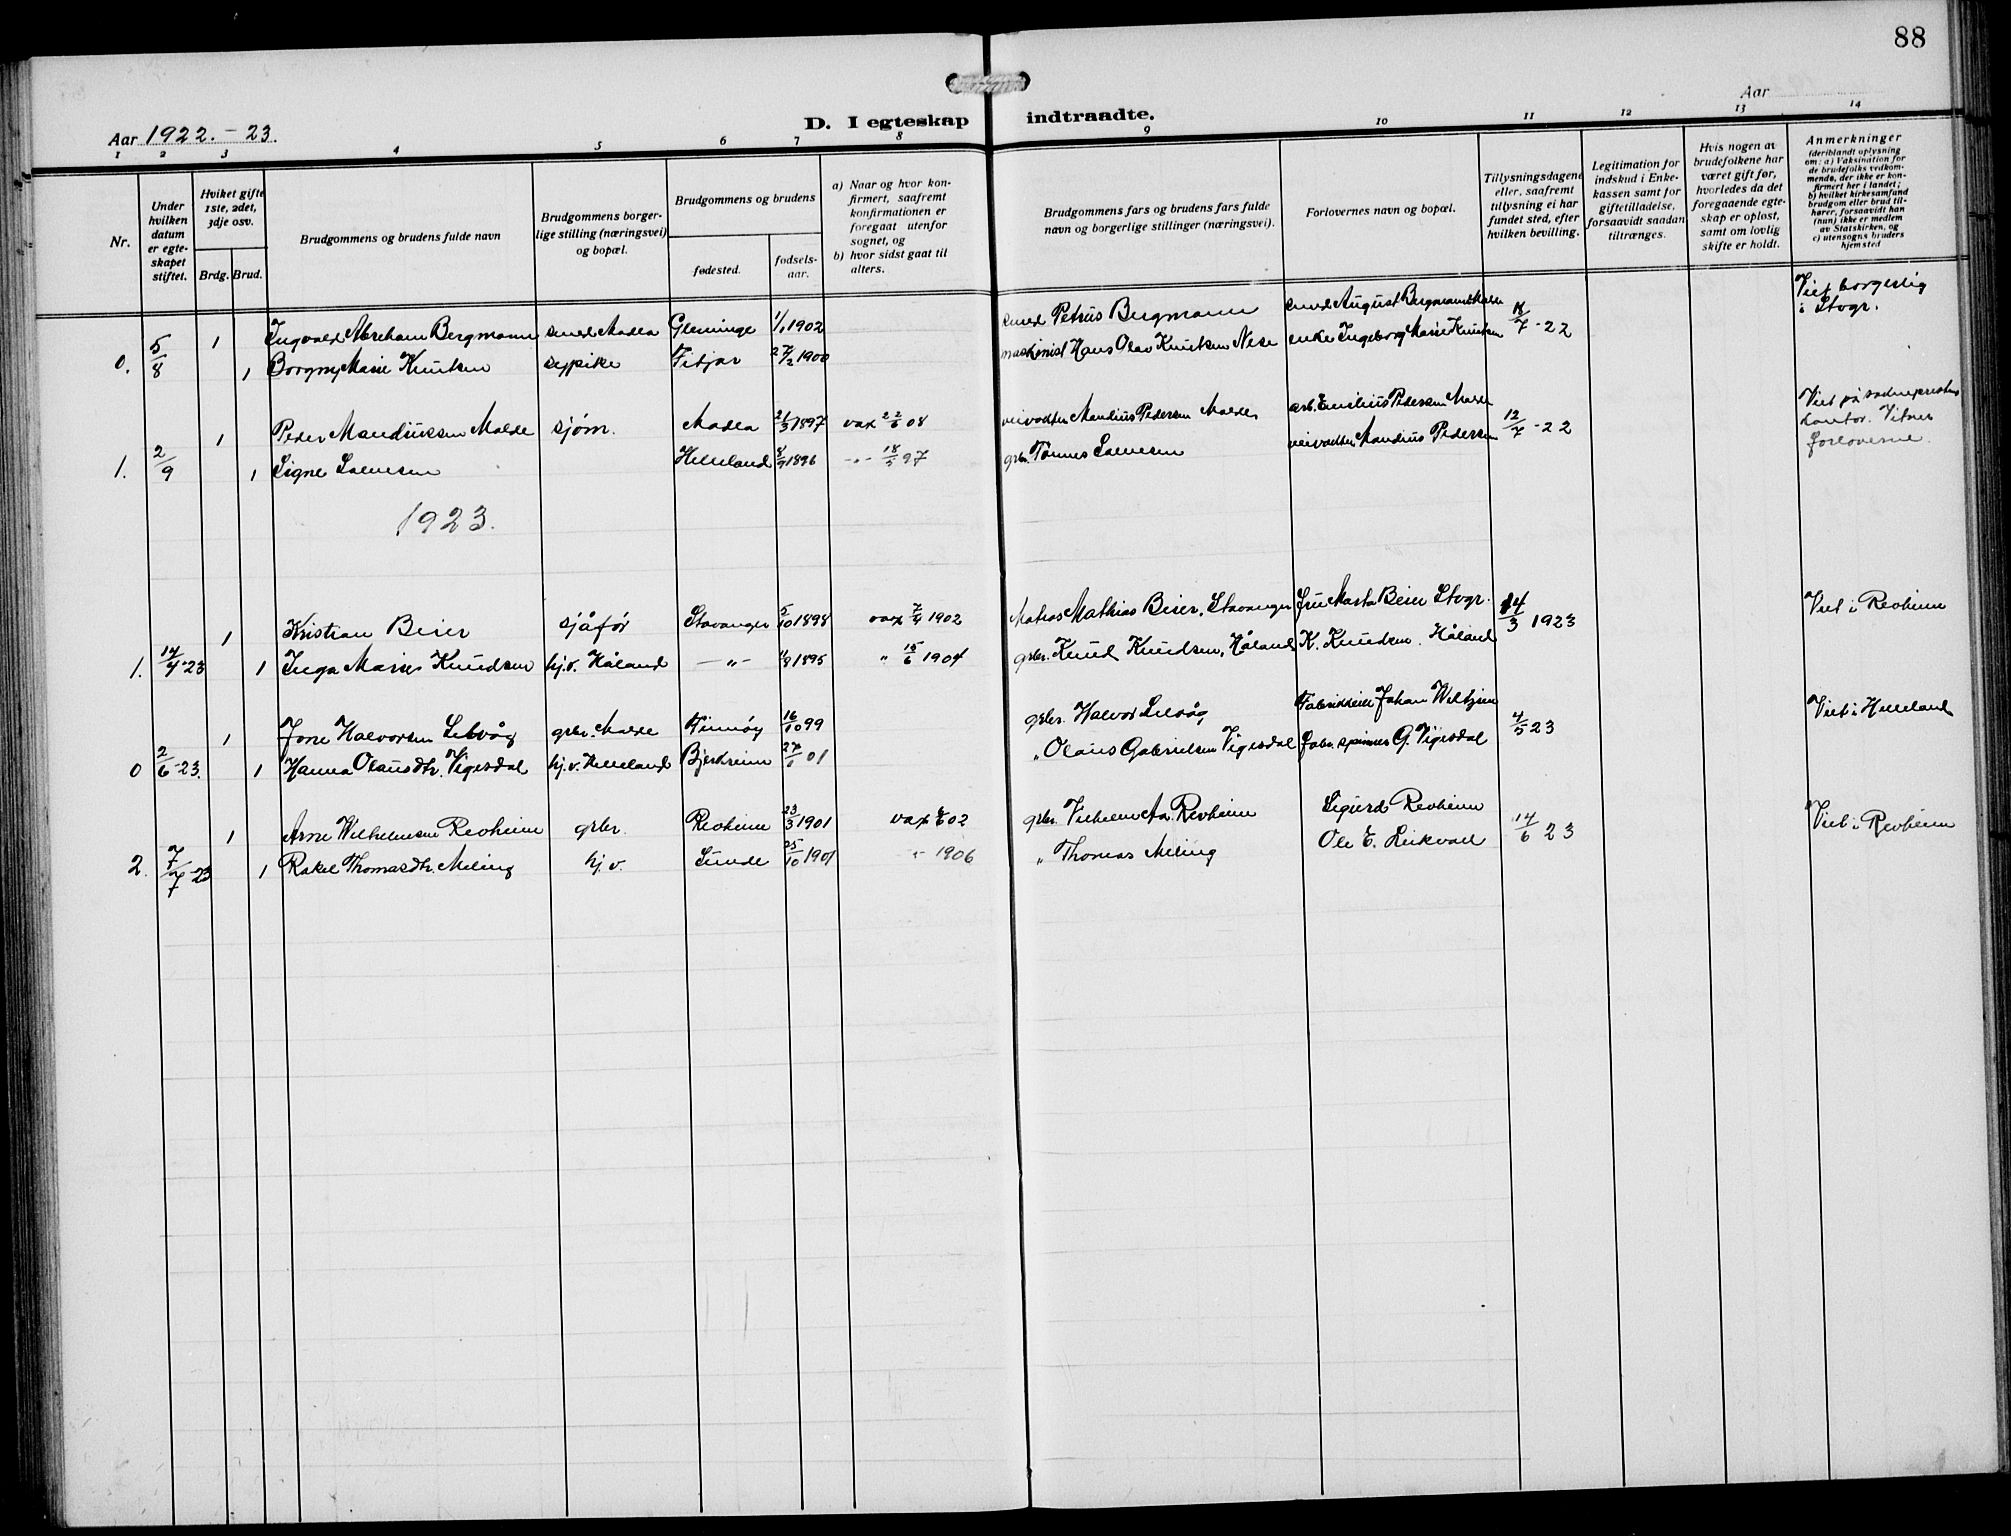 88
Aar 1922.-23.
D. I egteskap indtraadte.
Aar
1 2 3 4 5 6 7 8 9 10 11 12 13 14
Nr.
Under hvilken datum er egteskapet stiftet.
Hviket gifte 1ste, 2det, 3dje osv.
Brdg. Brud.
Brudgommens og brudens fulde navn
Brudgommens borgerlige stilling (næringsvei) og bopæl.
Brudgommens og brudens
fødested.
fødselsaar.
a) Naar og hvor konfirmert, saafremt konfirmationen er foregaat utenfor sognet, og
b) hvor sidst gaat til alters.
Brudgommens fars og brudens fars fulde navn og borgerlige stillinger (næringsvei).
Forlovernes navn og bopæl.
Tillysningsdagene eller, saafremt tillysning ei har fundet sted, efter hvilken bevilling.
Legitimation for indskud i Enkekassen samt for giftetilladelse, forsaavidt saadan tiltrænges.
Hvis nogen av brudefolkene har været gift før, hvorledes da det foregaaende egteskap er opløst, samt om lovlig skifte er holdt.
Anmerkninger (deriblandt oplysning om: a) Vaksination for de brudefolks vedkommende, der ikke er konfirmert her i landet; b) hvilket kirkesamfund brudgom eller brud tilhører, forsaavidt han (hun) ikke er medlem av Statskirken, og c) utensogns bruders hjemsted
0. 5/8 1 Ingvald Abraham Bergmann smed Madla Glemminge 1/1 1902 smed Petrus Bergmann smed August Bergmann 18/7-22 Viet borgerlig i Stvgr.
1 Borgny Marie Knutsen sypike Fitjar 27/2 1900 maskinist Hans Olav Knutsen Nese enke Ingeborg Marie Knutsen
1. 2/9 1 Peder Mandiussen Malde sjøm. Madla 21/3 1897 vax 22/6 08 veivokter Mandius Pedersen Malde arb. Emilius Pedersen Malde 12/7-22 Viet på sogneprestens kontor. Vitner forloverne.
1 Signe Salvesen Helleland 8/9 1896 -"- 18/5 97 grbr. Tønnes Salvesen veivokter Mandius Pedersen
1923.
1. 14/4-23 1 Kristian Beier sjåfør Stavanger 5/10 1898 vax 7/4 1902 Matros Mathias Beier, Stavanger fru Marta Beier Stvgr. 14/3 1923 Viet i Revheim
1 Inga Marie Knudsen hj.v. Håland -"- 1/8 1895 " 15/6 1904 grbr. Knud Knudsen, Håland K. Knudsen. Håland
0 2/6-23. 1 Jone Halvorsen Lilvåg grbr. Malde Finnøy 16/10 99 grbr. Halvor Lilvåg Fabrikkeier Johan Weltzien 4/5 23 Viet i Helleland
1 Hanna Olausdtr. Vigesdal hj.v. Helleland Bjerkreim 27/1 01 " Olaus Gabrielsen Vigesdal fabr. spinner G. Vigesdal
2. 7/7-23 1 Arne Wilhelmsen Revheim grbr. Revheim 23/3 1901 vax 02 grbr. Vilhelm A. Revheim Sigurd Revheim 14/6 23 Viet i Revheim
1 Rakel Thomasdtr. Meling hj.v. Sunde 25/10 1901 -"- 1906 " Thomas Meling Ole E. Leikvoll